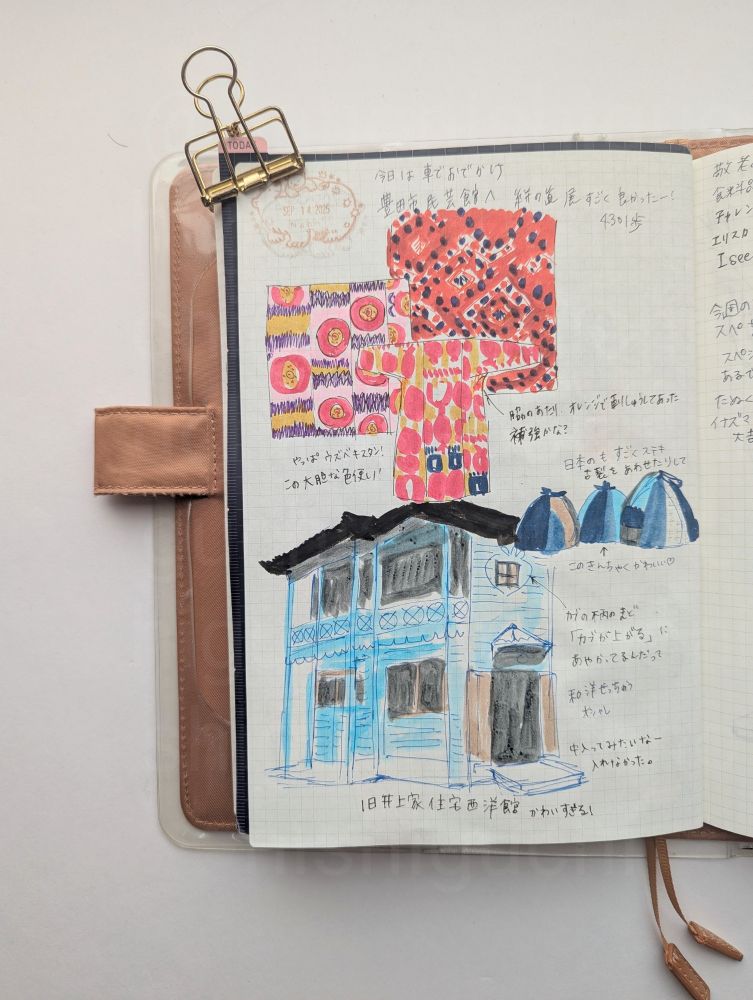 TODA
SEP 14 2025
今日は車でおでかけ
豊田市民芸館へ 絣の道 展 すごく良かったー!
4301歩
脇のあたり、オレンジで刺しゅうしてあった
補強かな?
やっぱ ウズベキスタン!
この大胆な色使い!
日本のも すごくステキ
古製をあわせたりして
↑
このきんちゃく かわいい♡
カブの柄のまど
「カブが上がる」に
あやかってるんだって
和洋せっちゅう
オシャレ
中入ってみたいなー
入れなかった。
旧井上家住宅西洋館 かわいすぎる!
敬老
食料品
チャレン
エリスカ
I see
今週の
スペ
スペシ
あるで
たぬく
イナズマ
大吉